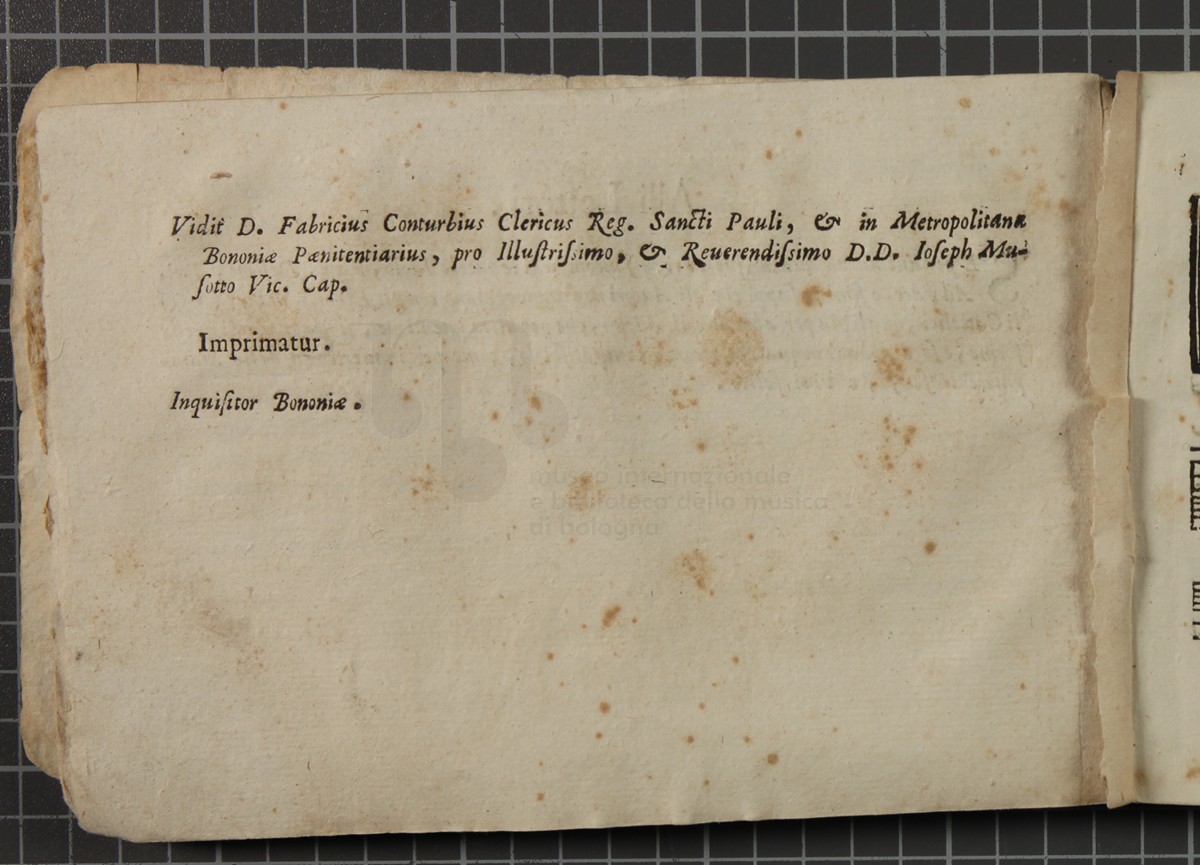 Vidit D. Fabricius Conturbius Clericus Reg. Sancti Pauli, & in Metropolitana
Bononiæ Pænitentiarius, pro Illuſtriſſimo, & Reuerendiſsimo D.D. Ioſeph Mu-
ſotto Vic. Cap.
Imprimatur.
Inquiſitor Bononiæ.
museo internazionale
e biblioteca della musica
di bologna